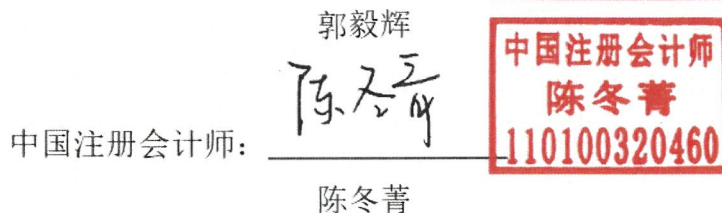 郭毅辉
中国注册会计师
陈冬菁
110100320460
陈冬菁
中国注册会计师：
陈冬菁